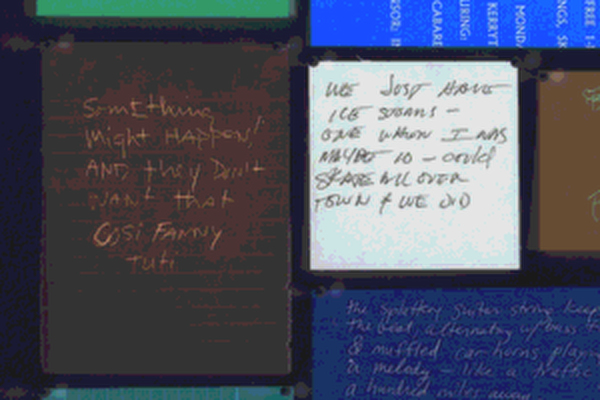 Something
Might HAPPEN!
AND they Don't
WANT that
COSI FANNY
TUTI
WE JUST HAVE
ICE STORMS –
ONE WHEN I WAS
MAYBE 10 – could
SKATE ALL OVER
TOWN & WE DID
the spluttery guitar string keeps
the beat, alternating w/ bass
& muffled car horns playing
a melody – like a traffic
a hundred miles away
FREE
NGS, SK
MONDA
KERRYT
URING:
CABARE